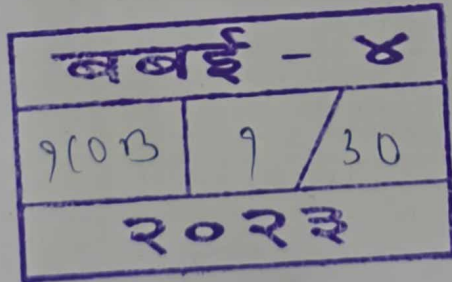 बबई - ४
१८०३ १ / ३०
२०२३